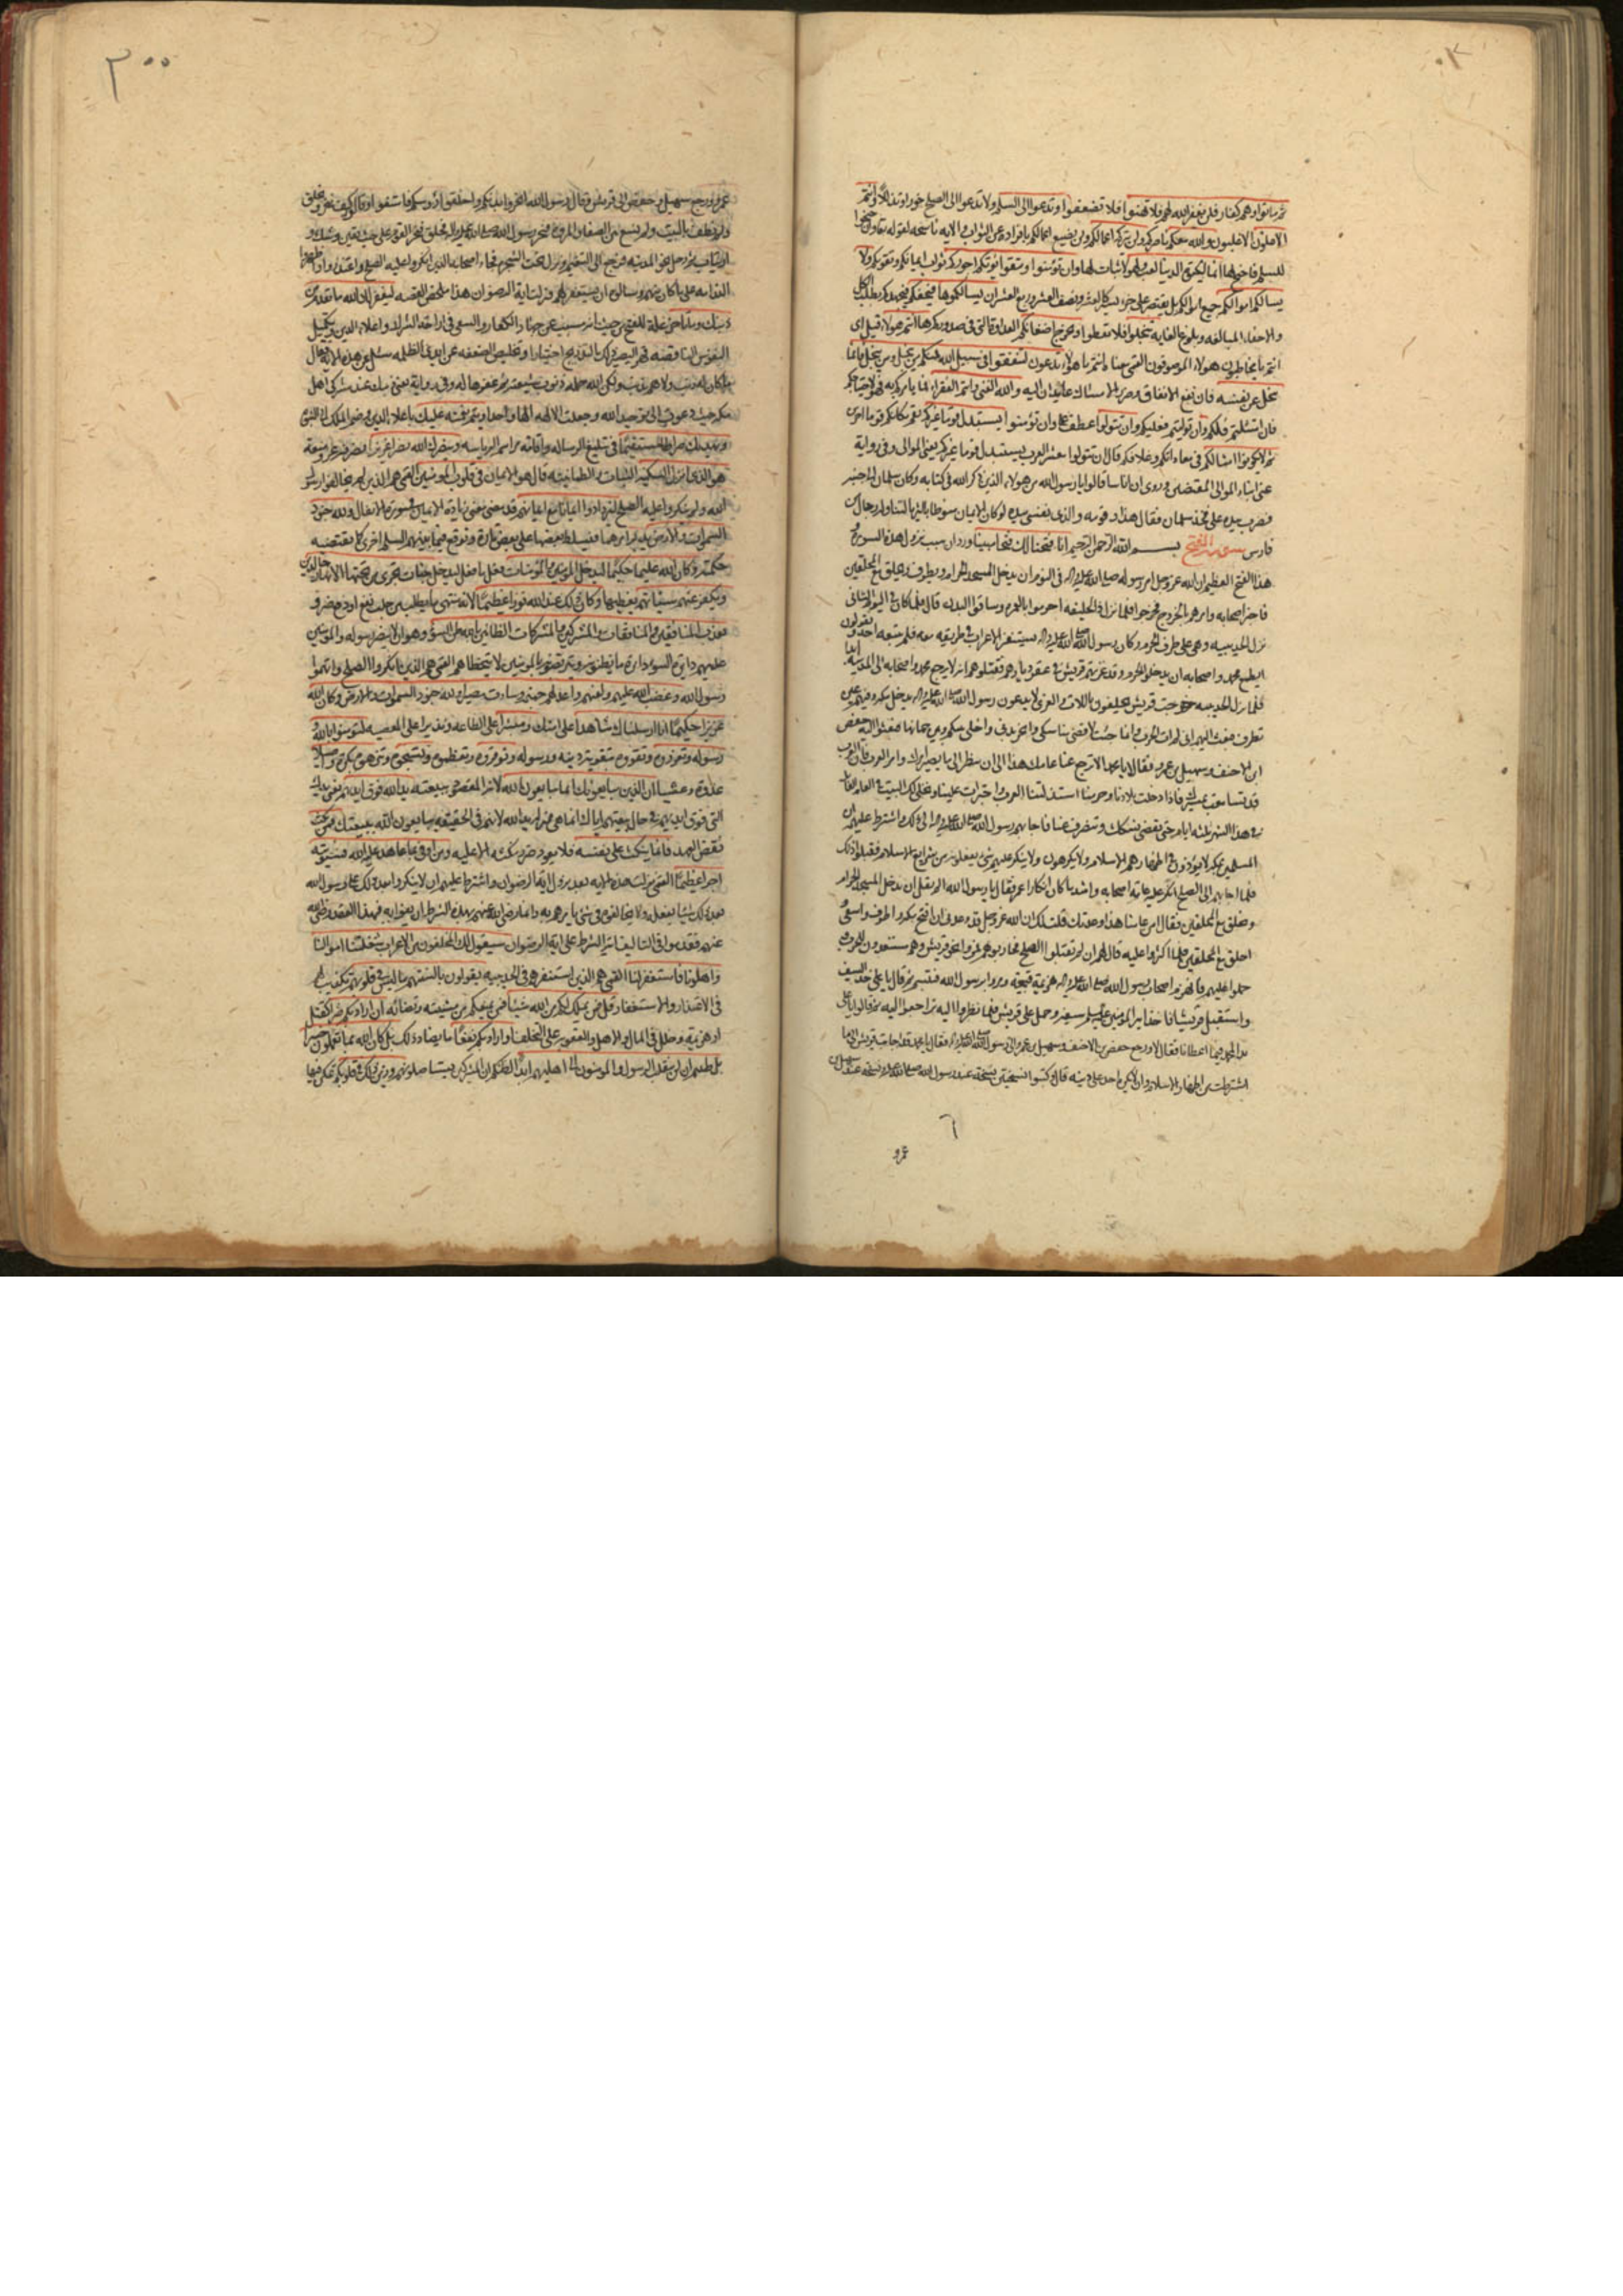 ثم ماتوا وهم كفار فلن يغفر الله لهم فلا تهنوا فلا تضعفوا وتدعوا الى السلم ولا تدعوا الى الصلح خورا وتذللا وانتم
الاعلون الاغلبون والله معكم ناصركم ولن يتركم اعمالكم ولن يضيع اعمالكم
للسلم فاجنح لها انما الحيوة الدنيا لعب ولهو لا ثبات لها وان تؤمنوا وتتقوا يؤتكم اجوركم ثواب ايمانكم وتقويكم ولا
يسالكم اموالكم جميع اموالكم بل يقتصر على جزء يسير كالعشر ونصف العشر وربع العشر ان يسالكموها فيحفكم فيجهدكم بطلب الكل
والاحفاء المبالغة وبلوغ الغاية تبخلوا فلا تعطوا ويخرج اضغانكم
انتم يا مخاطبون هؤلاء الموصوفون القمي معناه انتم يا هؤلاء تدعون لتنفقوا فى سبيل الله فمنكم من يبخل ومن يبخل فانما
يبخل عن نفسه فان نفع الانفاق وضرر الامساك عايدان اليه والله الغنى وانتم الفقراء فما يامركم به فهو لاحتياجكم
فان امتثلتم فلكم وان توليتم فعليكم وان تتولوا عطف على وان تؤمنوا يستبدل قوما غيركم يقم مكانكم قوما اخرين
ثم لا يكونوا امثالكم فى معاداتكم وخلافكم قال ان تتولوا معشر العرب يستبدل قوما غيركم يعنى الموالى وفى رواية
عنى ابناء الموالى المعتقين وروى ان اناسا قالوا يا رسول الله من هؤلاء الذين ذكر الله فى كتابه وكان سلمان الى جنبه
فضرب بيده على فخذ سلمان فقال هذا وقومه والذى نفسى بيده لو كان الايمان منوطا بالثريا لتناوله رجال من
فارس سورة الفتح بسم الله الرحمن الرحيم انا فتحنا لك فتحا مبينا ورد ان سبب نزول هذه السورة و
هذا الفتح العظيم ان الله عز وجل امر رسوله صلى الله عليه واله فى النوم ان يدخل المسجد الحرام ويطوف ويحلق مع المحلقين
فاخبر اصحابه وامرهم بالخروج فخرجوا فلما نزل ذا الحليفه احرموا بالعمره وساقوا البدن قال فلما كان فى اليوم الثانى
نزل الحديبيه وهى على طرف الحرم وكان رسول الله صلى الله عليه واله يستنفر الاعراب فى طريقه معه فلم يتبعه احد ويقولون
ايطمع محمد واصحابه ان يدخلوا الحرم وقد غزتهم قريش فى عقر ديارهم فقتلوهم انه لا يرجع محمد واصحابه الى المدينة ابدا
فلما نزل الحديبيه خرجت قريش يحلفون باللات والعزى لا يدعون رسول الله صلى الله عليه واله يدخل مكه وفيهم عين
تطرف فبعث اليهم انى لم ات لحرب وانما جئت لاقضى مناسكى وانحر بدنى واخلى بينكم وبين لحمانها فبعثوا اليه حفص
ابن الاحنف وسهيل بن عمرو فقالا يا محمد الا ترجع عنا عامك هذا الى ان ننظر الى ما يصير امرك وامر العرب فان العرب
قد تسامعت بمسيرك فاذا دخلت بلادنا وحرمنا استذلتنا العرب واجترات علينا ونخلى لك البيت فى العام القابل
فى هذا الشهر ثلثه ايام حتى تقضى نسكك وتنصرف عنا فاجابهم رسول الله صلى الله عليه واله الى ذلك واشترط عليهم ان
المسلمين بمكه لا يؤذون فى اظهارهم الاسلام ولا يكرهون ولا ينكر عليهم شىء يفعلونه من شرايع الاسلام فقبلوا ذلك
فلما اجابهم الى الصلح انكر عليه عامة اصحابه واشد ما كان انكارا عمر فقال يا رسول الله
ونحلق مع المحلقين فقال امن عامنا هذا وعدتك قلت لك ان الله عز وجل قد وعدنى ان افتح مكه واطوف واسعى و
احلق مع المحلقين فلما اكثروا عليه قال لهم ان لم تقبلوا الصلح فحاربوهم فمروا نحو قريش وهم مستعدون للحرب و
حملوا عليهم فانهزم اصحاب رسول الله صلى الله عليه واله هزيمة قبيحة ومروا برسول الله فتبسم ثم قال يا على خذ السيف
واستقبل قريشا فاخذ امير المؤمنين عليه السلم سيفه وحمل على قريش فلما نظروا اليه تراجعوا اليه ثم قالوا يا على
بدا لمحمد فيما اعطانا فقال لا ورجع حفص بن الاحنف وسهيل بن عمرو الى رسول الله صلى الله عليه واله فقالا يا محمد قد اجابت قريش الى ما
اشترطت من اظهار الاسلام وان لا يكره احد على دينه
عمرو
٣٠٠
عمرو ورجع سهيل وحفص الى قريش وقال رسول الله انحروا بدنكم واحلقوا رؤسكم فامتنعوا وقالوا كيف ننحر ونحلق
ولم نطف بالبيت ولم نسع بين الصفا والمروة فنحر رسول الله صلى الله عليه واله وحلق فنحر القوم على حيث يقين وشك و
ارتياب ثم رحل نحو المدينه فرجع الى التنعيم ونزل تحت الشجره فجاء اصحابه الذين انكروا عليه الصلح واعتذروا واظهروا
الندامه على ما كان منهم وسالوه ان يستغفر لهم فنزلت اية الرضوان هذا ملخص القصه ليغفر لك الله ما تقدم من
ذنبك وما تاخر علة للفتح من حيث انه مسبب عن جهاد الكفار والسعى فى ازاحة الشرك واعلاء الدين وتكميل
النفوس الناقصه قهرا ليصير ذلك بالتدريج اختيارا وتخليص الضعفه عن ايدى الظلمه سئل عن هذه الاية فقال
ما كان له ذنب ولا هم بذنب ولكن الله حمله ذنوب شيعته ثم غفرها له وفى رواية يعنى ذنبك عند مشركى اهل
مكه حيث دعوت الى توحيد الله وجعلت الالهه الها واحدا ويتم نعمته عليك باعلاء الدين وضم الملك الى النبوة
ويهديك صراطا مستقيما فى تبليغ الرساله واقامة مراسم الرياسه وينصرك الله نصرا عزيزا نصرا فيه عز ومنعة
هو الذى انزل السكينه الثبات والطمانينه قال هو الايمان فى قلوب المؤمنين القمى هم الذين لم يخالفوا رسول
الله ولم ينكروا عليه الصلح ليزدادوا ايمانا مع ايمانهم قد مضى معنى زيادة الايمان فى سورة الانفال ولله جنود
السموات والارض يدبر امرها فيسلط بعضها على بعض تارة ويوقع فيما بينهم السلم اخرى كما يقتضيه
حكمته وكان الله عليما حكيما ليدخل المؤمنين والمؤمنات فعل ما فعل ليدخل جنات تجرى من تحتها الانهار خالدين
ويكفر عنهم سيئاتهم يغطيها وكان ذلك عند الله فوزا عظيما لانه منتهى ما يطلب من جلب نفع او دفع ضر و
يعذب المنافقين والمنافقات والمشركين والمشركات الظانين بالله ظن السوء وهو ان لا ينصر رسوله والمؤمنين
عليهم دائرة السوء دائرة ما يظنونه ويتربصونه بالمؤمنين لا يتخطاهم القمى هم الذين انكروا الصلح واتهموا
رسول الله وغضب الله عليهم ولعنهم واعد لهم جهنم وساءت مصيرا ولله جنود السموات والارض وكان الله
عزيزا حكيما انا ارسلناك شاهدا على امتك ومبشرا على الطاعه ونذيرا على المعصيه لتؤمنوا بالله و
رسوله وتعزروه وتقووه بتقوية دينه ورسوله وتوقروه وتعظموه وتسبحوه وتنزهوه بكرة واصيلا
غدوة وعشيا ان الذين يبايعونك انما يبايعون الله لانه المقصود ببيعته يد الله فوق ايديهم يعنى يدك
التى فوق ايديهم فى حال بيعتهم اياك انما هى بمنزلة يد الله لانهم فى الحقيقه يبايعون الله ببيعتك فمن نكث
نقض العهد فانما ينكث على نفسه فلا يعود ضرر نكثه الا عليه ومن اوفى بما عاهد عليه الله فسيؤتيه
اجرا عظيما القمى نزلت هذه الايه بعد نزول اية الرضوان واشترط عليهم ان لا ينكروا بعد ذلك على رسول الله
بعد ذلك شيئا يفعله ولا يخالفوه فى شىء يامرهم به وانما رضى الله عنهم بهذا الشرط ان يفوا به فبهذا العقد رضى الله
عنهم فقدموا فى التاليف اية الشرط على اية الرضوان سيقول لك المخلفون من الاعراب شغلتنا اموالنا
واهلونا فاستغفر لنا القمى هم الذين استنفرهم فى الحديبيه يقولون بالسنتهم ما ليس فى قلوبهم تكذيب لهم
فى الاعتذار والاستغفار قل فمن يملك لكم من الله شيئا فمن يمنعكم من مشيته وقضائه ان اراد بكم ضرا كقتل
او هزيمة وخلل فى المال والاهل والعقوبه على التخلف او اراد بكم نفعا ما يضاد ذلك بل كان الله بما تعملون خبيرا
بل ظننتم ان لن ينقلب الرسول والمؤمنون الى اهليهم ابدا لظنكم ان المشركين يستاصلونهم وزين ذلك فى قلوبكم فتمكن فيها